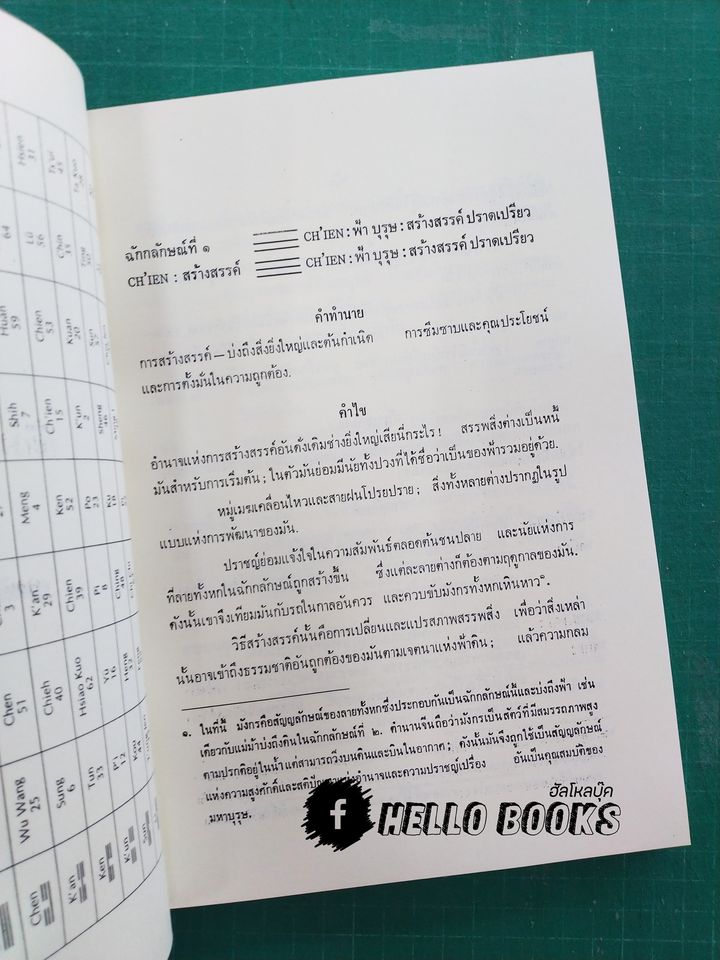 Hsien
31
Ts'ui
45
64
Lü
56
Chin
35
Huan
59
Chien
53
Kuan
20
Shih
7
Ch'ien
15
K'un
2
Sheng
46
Meng
4
Ken
52
Po
23
Ku
18
3
K'an
29
Chien
39
Pi
8
Ching
48
Chen
51
Chieh
40
Hsiao Kuo
62
Yü
16
Heng
32
Wu Wang
25
Sung
6
Tun
33
P'i
12
Kou
Chen
K'an
Ken
K'un
Sun
ฉักกลักษณ์ที่ ๑
CH'IEN : ฟ้า บุรุษ : สร้างสรรค์ ปราดเปรียว
CH'IEN : สร้างสรรค์
CH'IEN : ฟ้า บุรุษ : สร้างสรรค์ ปราดเปรียว
คำทำนาย
การสร้างสรรค์ — บ่งถึงสิ่งยิ่งใหญ่และต้นกำเนิด การซึมซาบและคุณประโยชน์
และการตั้งมั่นในความถูกต้อง.
คำไข
อำนาจแห่งการสร้างสรรค์อันดั่งเดิมช่างยิ่งใหญ่เสียนี่กระไร! สรรพสิ่งต่างเป็นหนี้
มันสำหรับการเริ่มต้น ; ในตัวมันย่อมมีนัยทั้งปวงที่ได้ชื่อว่าเป็นของฟ้ารวมอยู่ด้วย.
หมู่เมฆเคลื่อนไหวและสายฝนโปรยปราย ; สิ่งทั้งหลายต่างปรากฏในรูป
แบบแห่งการพัฒนาของมัน.
ปราชญ์ย่อมแจ้งใจในความสัมพันธ์ตลอดต้นชนปลาย และนัยแห่งการ
ที่ลายทั้งหกในฉักกลักษณ์ถูกสร้างขึ้น ซึ่งแต่ละลายต่างก็ต้องตามฤดูกาลของมัน.
ดังนั้นเขาจึงเทียมมันกับรถในกาลอันควร และควบขับมังกรทั้งหกเหินหาว๑.
วิธีสร้างสรรค์นั้นคือการเปลี่ยนและแปรสภาพสรรพสิ่ง เพื่อว่าสิ่งเหล่า
นั้นอาจเข้าถึงธรรมชาติอันถูกต้องของมันตามเจตนาแห่งฟ้าดิน ; แล้วความกลม
๑. ในที่นี้ มังกรคือสัญญลักษณ์ของลายทั้งหกซึ่งประกอบกันเป็นฉักกลักษณ์นี้และบ่งถึงฟ้า เช่น
เดียวกับแม่ม้าบ่งถึงดินในฉักกลักษณ์ที่ ๒. ตำนานจีนถือว่ามังกรเป็นสัตว์ที่มีสมรรถภาพสูง
ตามปรกติอยู่ในน้ำแต่สามารถวิ่งบนดินและบินในอากาศ ; ดังนั้นมันจึงถูกใช้เป็นสัญญลักษณ์
แห่งความสูงศักดิ์และสติปัญ อำนาจและความปราชญ์เปรื่อง อันเป็นคุณสมบัติของ
มหาบุรุษ.
f
ฮัลโหลบุ๊ค
HELLO BOOKS